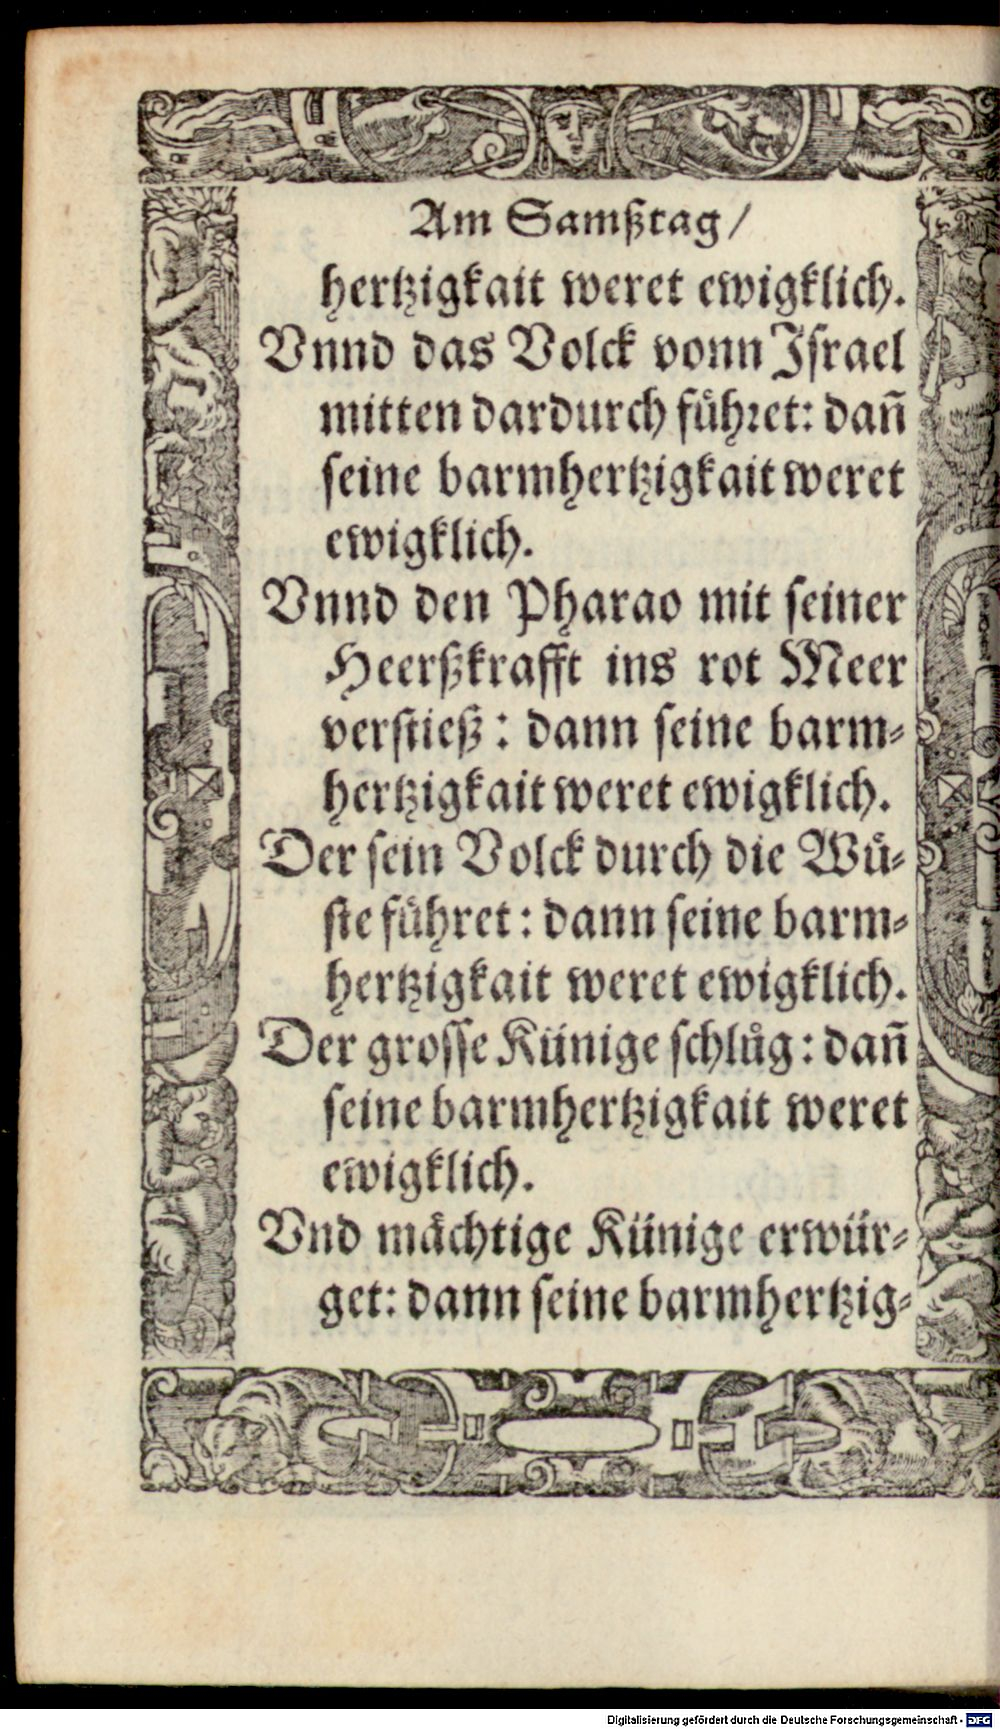 Am Samßtag/
hertzigkait weret ewigklich.
Vnnd das Volck vonn Jsrael
mitten dardurch fuͤhꝛet: dañ
seine barmhertzigkait weret
ewigklich.
Vnnd den Pharao mit seiner
Heerßkrafft ins rot Meer
verstieß: dann seine barm⸗
hertzigkait weret ewigklich.
Der sein Volck durch die Wuͤ⸗
ste fuͤhret: dann seine barm⸗
hertzigkait weret ewigklich.
Der grosse Künige schluͦg: dañ
seine barmhertzigkait weret
ewigklich.
Vnd maͤchtige Künige erwür⸗
get: dann seine barmhertzig⸗
Digitalisierung gefördert durch die Deutsche Forschungsgemeinschaft - DFG